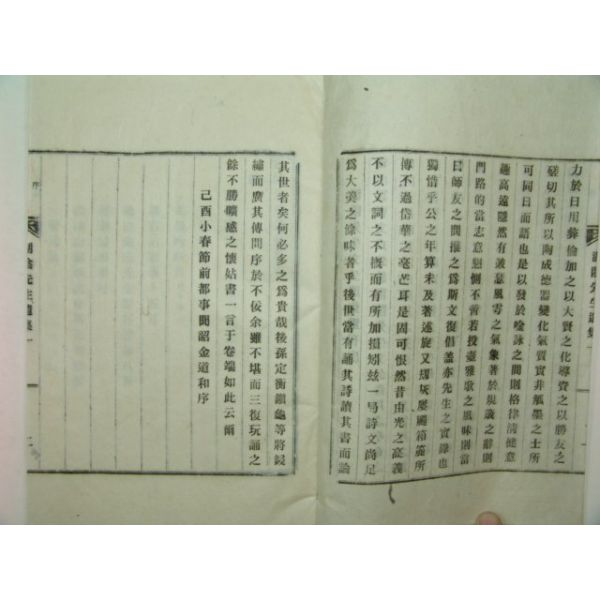 力於日用彜倫加之以大賢之化導資之以勝友之
磋切其所以陶成德器變化氣質實非觚墨之士所
可同日而語也是以發於唫詠之間則格律淸健意
趣高遠隱然有瑟風雩之氣象著於規箴之辭則
門路的當志意懇惻不啻若投壺雅歌之風味則當
日師友之間推之爲斯文復倡蓋亦先生之實錄也
獨惜乎公之年算未及著述旋又燬灰屢箱篋所
傳不過岱華之毫芒耳是固可恨然昔由光之高義
不以文詞之不槪而有所加損矧玆一臠詩文尙足
爲大羹之餘味者乎後世當有誦其詩讀其書而論
其世者矣何必多之爲貴哉後孫定衡鎭龜等將鋟
繡而廣其傳問序於不佞余雖不堪而三復玩誦之
餘不勝曠感之懷姑書一言于卷端如此云爾
己酉小春節前都事聞韶金道和序
序
先生遺集